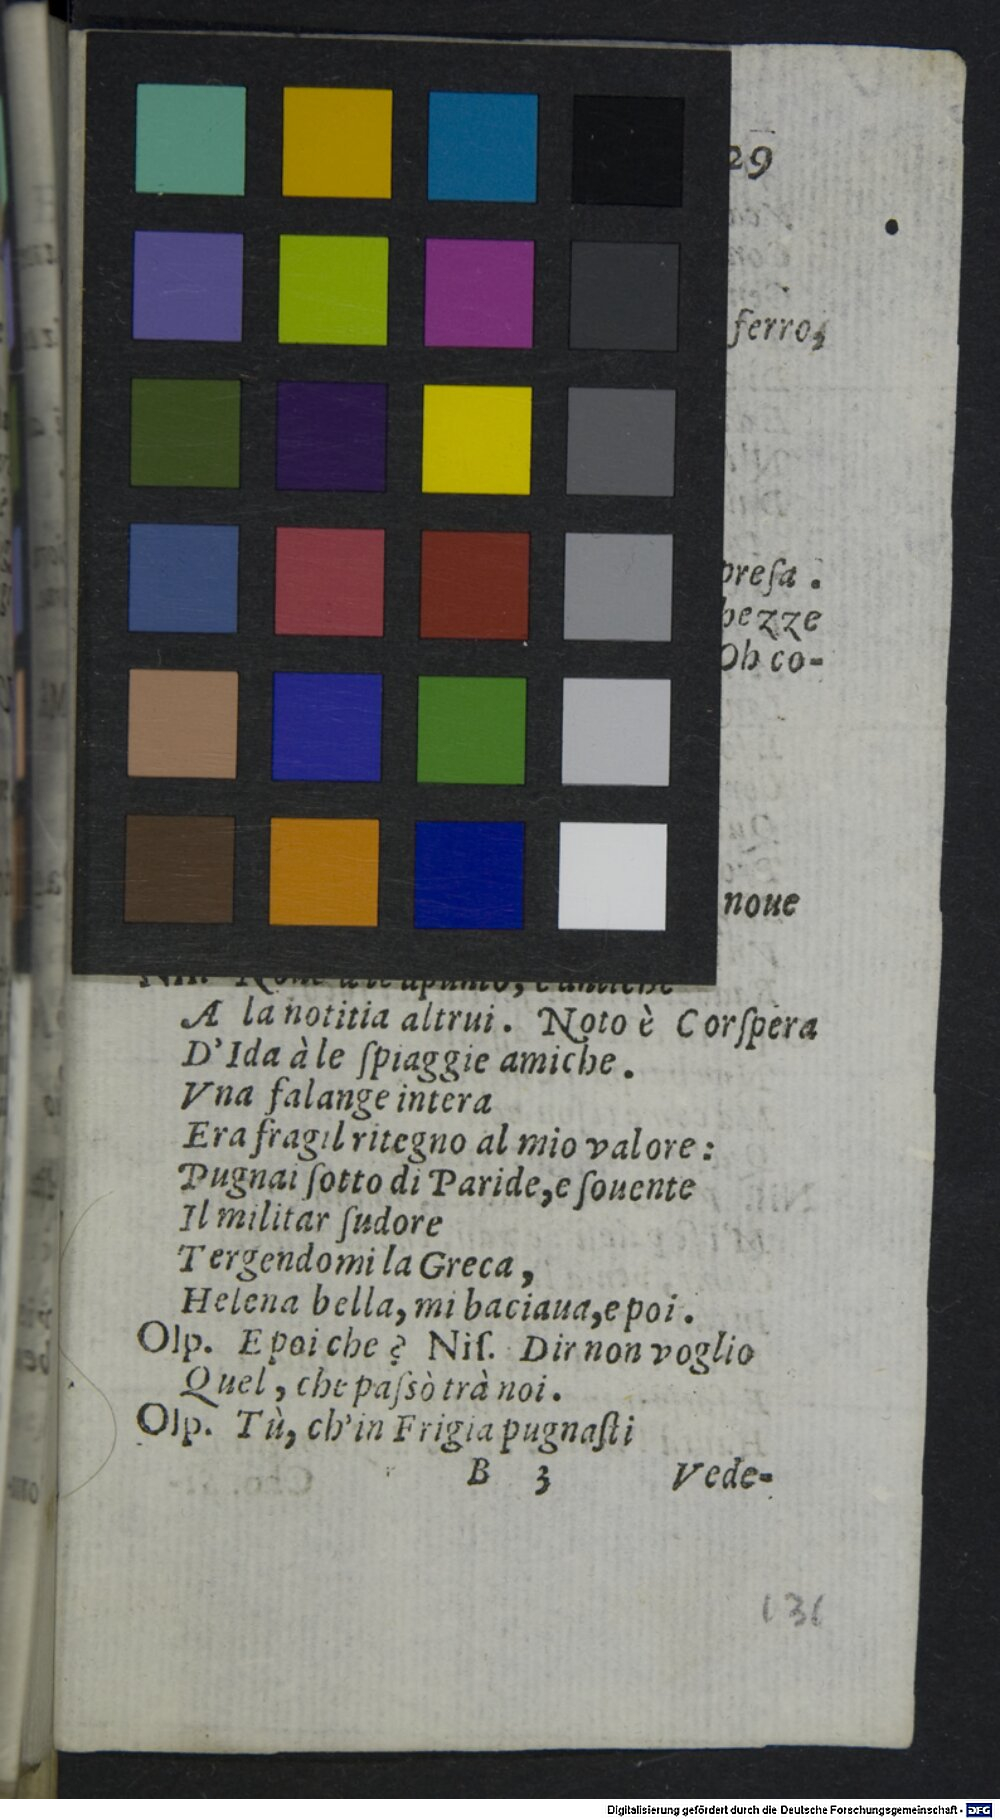 29
ferro,
presa .
hezze
Oh co-
noue
A la notitia altrui. Noto è Corſpera
D'Ida à le ſpiaggie amiche.
Vna falange intera
Era fragil ritegno al mio valore:
Pugnai ſotto di Paride, e ſouente
Il militar ſudore
Tergendomi la Greca,
Helena bella, mi baciaua, e poi.
Olp. E poi che? Niſ. Dir non voglio
Quel, che paſsò trà noi.
Olp. Tù, ch'in Frigia pugnaſti
B 3 Vede-
131
Digitalisierung gefördert durch die Deutsche Forschungsgemeinschaft - DFG